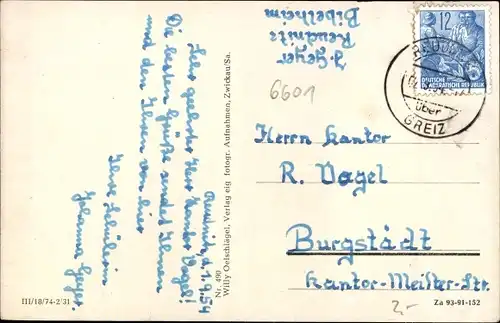 Reudnitz, d. 1.9.54
Sehr geehrter Herr Kantor Vogel!
Die besten Grüße sendet Ihnen
und den Ihren von hier
Ihre Schülerin
Johanna Geyer.
J. Geyer
Reudnitz
Bibelheim
6601
12
DEUTSCHE
DEMOKRATISCHE REPUBLIK
über
GREIZ
Herrn Kantor
R. Vogel
Burgstädt
Kantor-Meister-Str.
2,-
Nr. 490
Willy Oetschlägel, Verlag eig fotogr. Aufnahmen, Zwickau/Sa.
III/18/74-2/31
Za 93-91-152